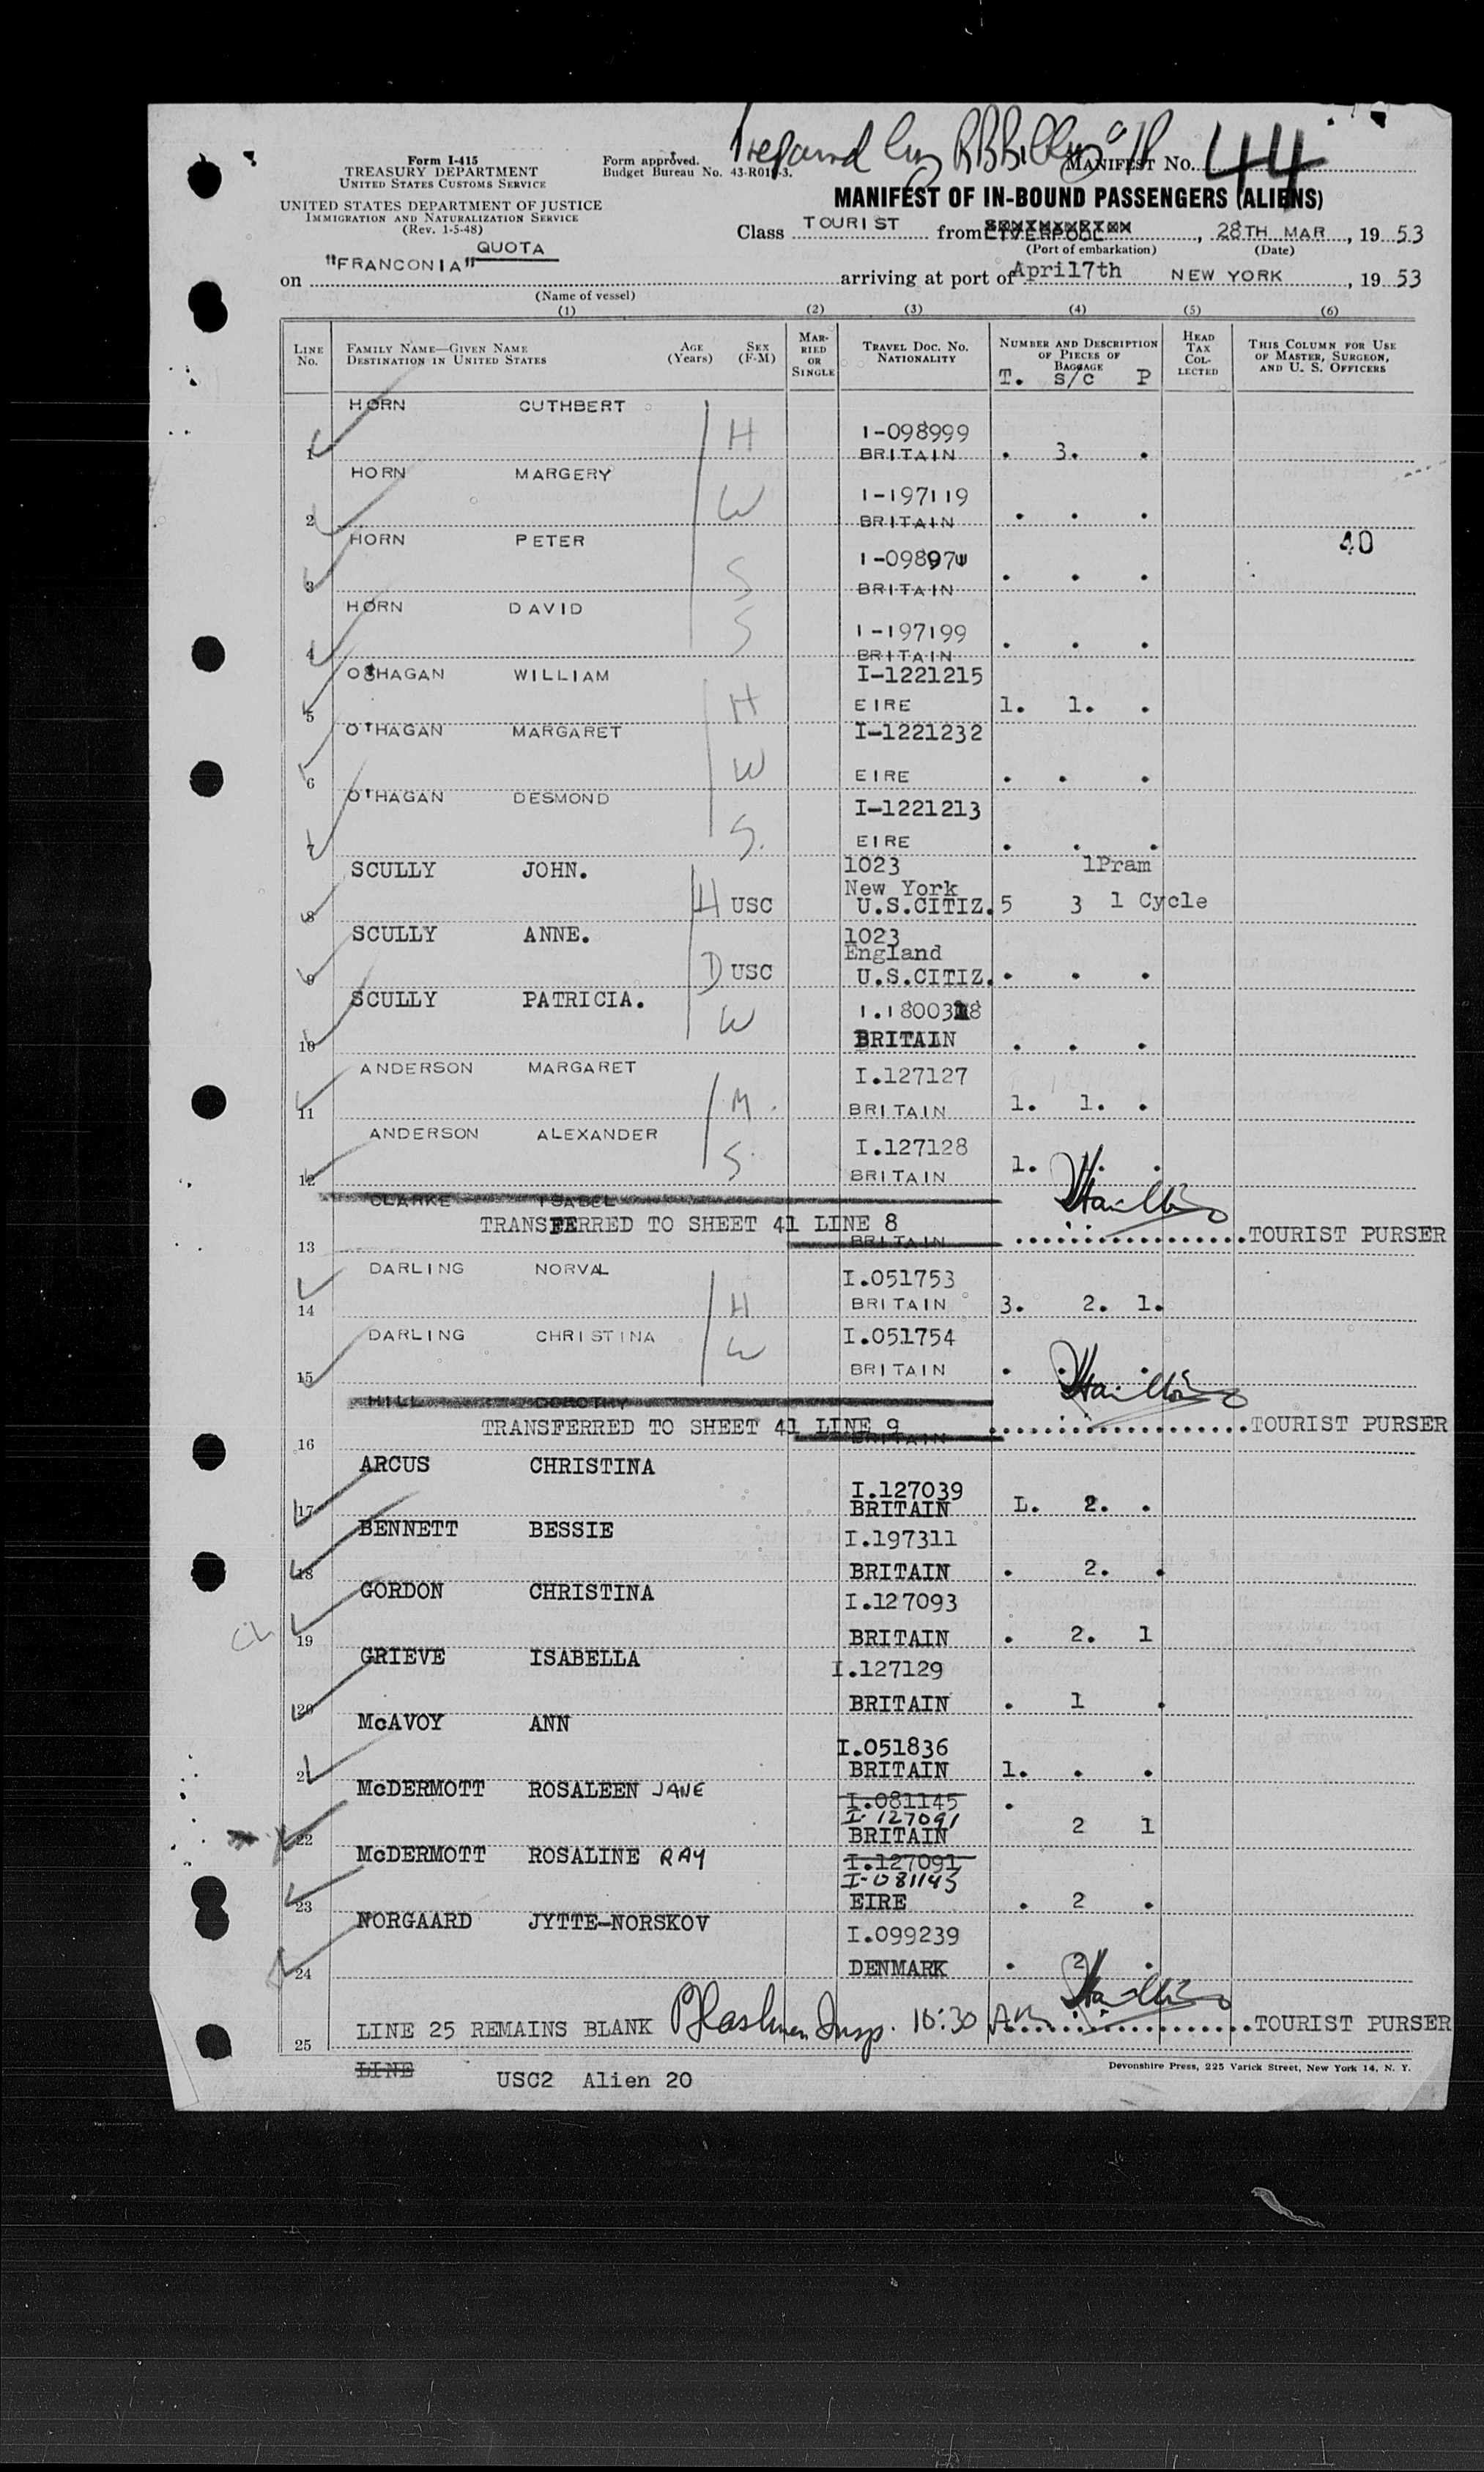 Prepared by
Form I-415
TREASURY DEPARTMENT
UNITED STATES CUSTOMS SERVICE
Form approved.
Budget Bureau No. 43-R01 -3.
MANIFEST No. 44
UNITED STATES DEPARTMENT OF JUSTICE
IMMIGRATION AND NATURALIZATION SERVICE
(Rev. 1-5-48)
MANIFEST OF IN-BOUND PASSENGERS (ALIENS)
QUOTA
Class TOURIST from LIVERPOOL, 28TH MAR, 1953
(Port of embarkation) (Date)
on "FRANCONIA" arriving at port of April7th NEW YORK, 1953
(Name of vessel)
(1) (2) (3) (4) (5) (6)
LINE No. FAMILY NAME—GIVEN NAME DESTINATION IN UNITED STATES AGE (Years) SEX (F-M) MARRIED OR SINGLE TRAVEL DOC. NO. NATIONALITY NUMBER AND DESCRIPTION OF PIECES OF BAGGAGE HEAD TAX COLLECTED THIS COLUMN FOR USE OF MASTER, SURGEON, AND U. S. OFFICERS
T. S/C P
HORN CUTHBERT
H I-098999
1 BRITAIN . 3. .
HORN MARGERY
W I-197119
2 BRITAIN . . .
HORN PETER 40
S I-09897
3 BRITAIN . . .
HORN DAVID
S I-197199
4 BRITAIN . . .
O'HAGAN WILLIAM I-1221215
5 H EIRE 1. 1. .
O'HAGAN MARGARET I-1221232
6 W EIRE . . .
O'HAGAN DESMOND I-1221213
7 S. EIRE . . .
SCULLY JOHN. 1023 1Pram
New York
8 H USC U.S.CITIZ. 5 3 1 Cycle
SCULLY ANNE. 1023
England
9 D USC U.S.CITIZ. . . .
SCULLY PATRICIA. 1.1800318
10 W BRITAIN . . .
ANDERSON MARGARET I.127127
11 M. BRITAIN 1. 1. .
ANDERSON ALEXANDER I.127128
12 S. BRITAIN 1. . .
CLARKE ISABEL
TRANSFERRED TO SHEET 41 LINE 8
13 BRITAIN TOURIST PURSER
DARLING NORVAL I.051753
14 H BRITAIN 3. 2. 1.
DARLING CHRISTINA I.051754
15 W BRITAIN . . .
HILL DOROTHY
TRANSFERRED TO SHEET 41 LINE 9 TOURIST PURSER
16 BRITAIN
ARCUS CHRISTINA
I.127039
17 BRITAIN 1. 2. .
BENNETT BESSIE I.197311
18 BRITAIN . 2. .
GORDON CHRISTINA I.127093
19 BRITAIN . 2. 1
GRIEVE ISABELLA I.127129
20 BRITAIN . 1 .
McAVOY ANN
I.051836
21 BRITAIN 1. . .
McDERMOTT ROSALEEN JANE I.081145
I.127091
22 BRITAIN . 2 1
McDERMOTT ROSALINE RAY I.127091
I-081145
23 EIRE . 2 .
NORGAARD JYTTE-NORSKOV I.099239
24 DENMARK . 2 .
25 LINE 25 REMAINS BLANK Insp. 10:30 AM TOURIST PURSER
LINE
USC2 Alien 20
Devonshire Press, 225 Varick Street, New York 14, N. Y.